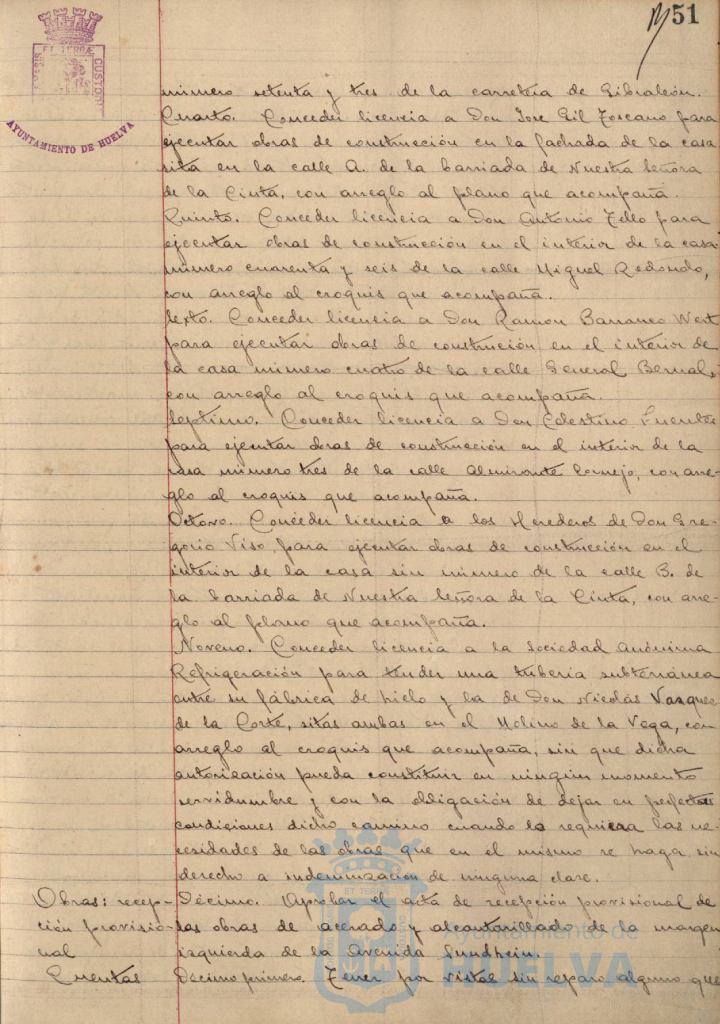 51
ET TERRÆ
CUSTODI
AYUNTAMIENTO DE HUELVA
número setenta y tres de la carretera de Gibraleón.
Cuarto. Conceder licencia a Don Jose Gil Toscano para
ejecutar obras de construcción en la fachada de la casa
sita en la calle A. de la barriada de Nuestra Señora
de la Cinta, con arreglo al plano que acompaña.
Quinto. Conceder licencia a Don Antonio Tello para
ejecutar obras de construcción en el interior de la casa
número cuarenta y seis de la calle Miguel Redondo,
con arreglo al croquis que acompaña.
Sexto. Conceder licencia a Don Ramon Barranco Wert
para ejecutar obras de construcción en el interior de
la casa número cuatro de la calle General Bernal,
con arreglo al croquis que acompaña.
Septimo. Conceder licencia a Don Celestino Fuentes
para ejecutar obras de construcción en el interior de la
casa número tres de la calle Almirante Cornejo, con arre-
glo al croquis que acompaña.
Octavo. Conceder licencia a los Herederos de Don Gre-
gorio Viso, para ejecutar obras de construcción en el
interior de la casa sin número de la calle B. de
la barriada de Nuestra Señora de la Cinta, con arre-
glo al plano que acompaña.
Noveno. Conceder licencia a la Sociedad Anónima
Refrigeración para tender una tubería subterránea
entre su fábrica de hielo y la de Don Nicolás Vazquez
de la Corte, sitas ambas en el Molino de la Vega, con
arreglo al croquis que acompaña, sin que dicha
autorización pueda constituir en ningún momento
servidumbre y con la obligación de dejar en perfectas
condiciones dicho camino cuando lo requiera las ne-
cesidades de las obras que en el mismo se haga, sin
derecho a indemnización de ninguna clase.
Obras: recep-
ción provisio-
nal
Décimo. Aprobar el acta de recepción provisional de
las obras de acerado y alcantarillado de la margen
izquierda de la Avenida Sundheim.
Cuentas
Décimo primero. Tener por vistas sin reparo alguno que
ET TERRÆ
Ayuntamiento de
HUELVA